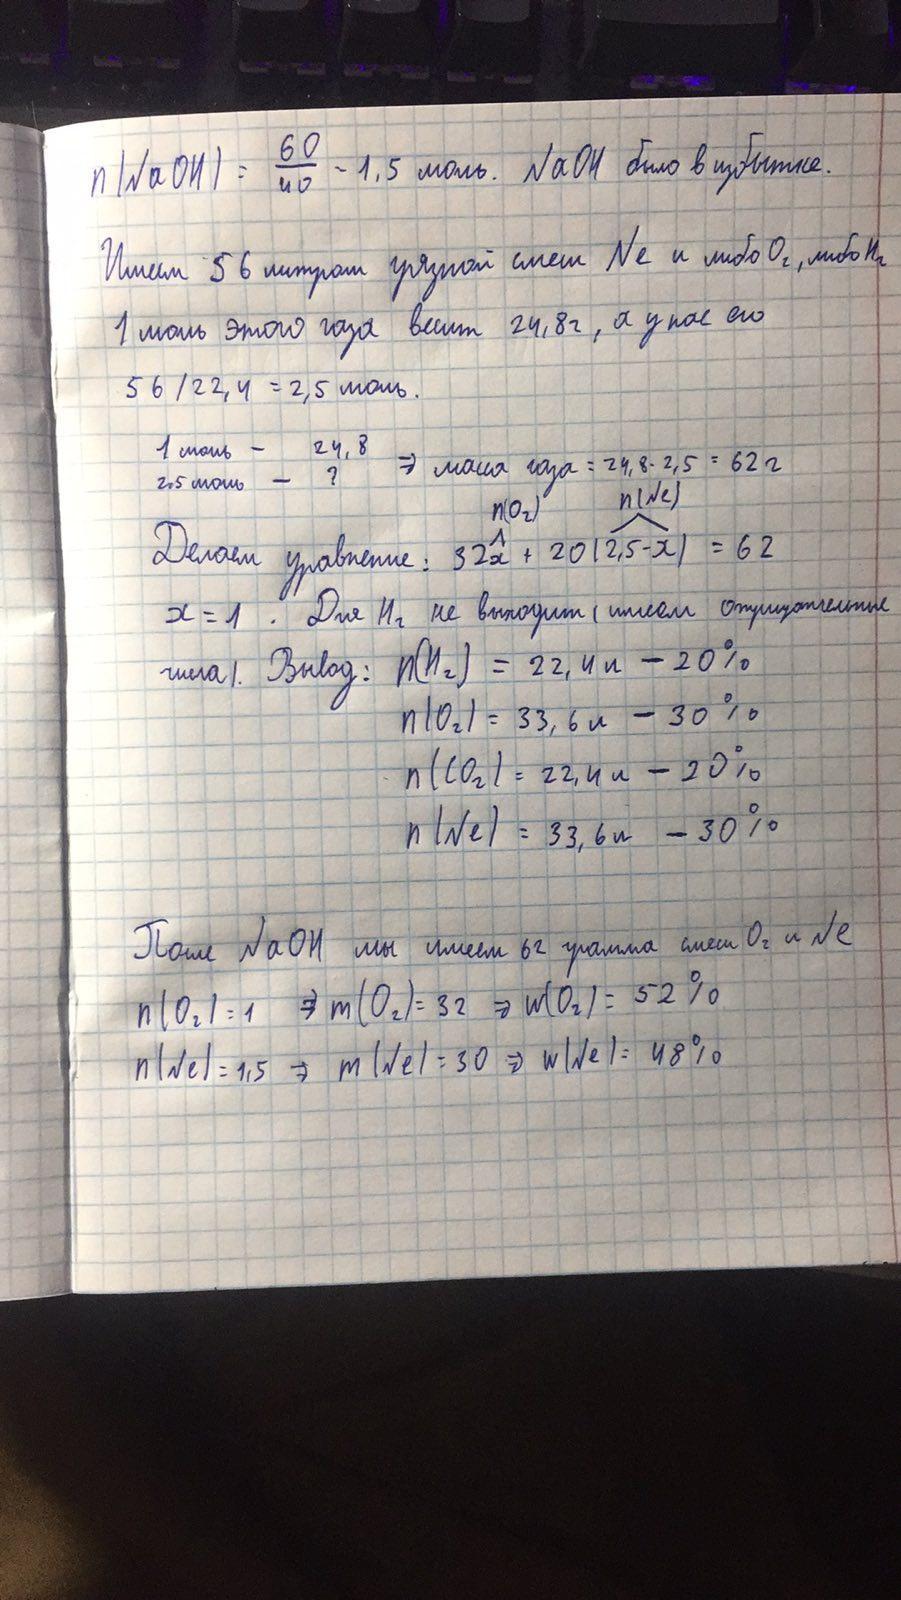 n(NaOH) = 60/40 - 1,5 моль. NaOH было в избытке.
Имеем 56 литров грязной смеси Ne и либо O₂, либо H₂
1 моль этого газа весит 24,8г, а у нас его
56/22,4 = 2,5 моль.
1 моль - 24,8
2.5 моль - ? ⇒ масса газа = 24,8·2,5 = 62 г
n(O₂) n(Ne)
Делаем уравнение: 32x + 20(2,5-x) = 62
x = 1. Для H₂ не выходит (имеем отрицательные
числа). Вывод: n(H₂) = 22,4л - 20%
n(O₂) = 33,6л - 30%
n(CO₂) = 22,4л - 20%
n(Ne) = 33,6л - 30%
После NaOH мы имеем 62 грамма смеси O₂ и Ne
n(O₂) = 1 ⇒ m(O₂) = 32 ⇒ w(O₂) = 52%
n(Ne) = 1,5 ⇒ m(Ne) = 30 ⇒ w(Ne) = 48%